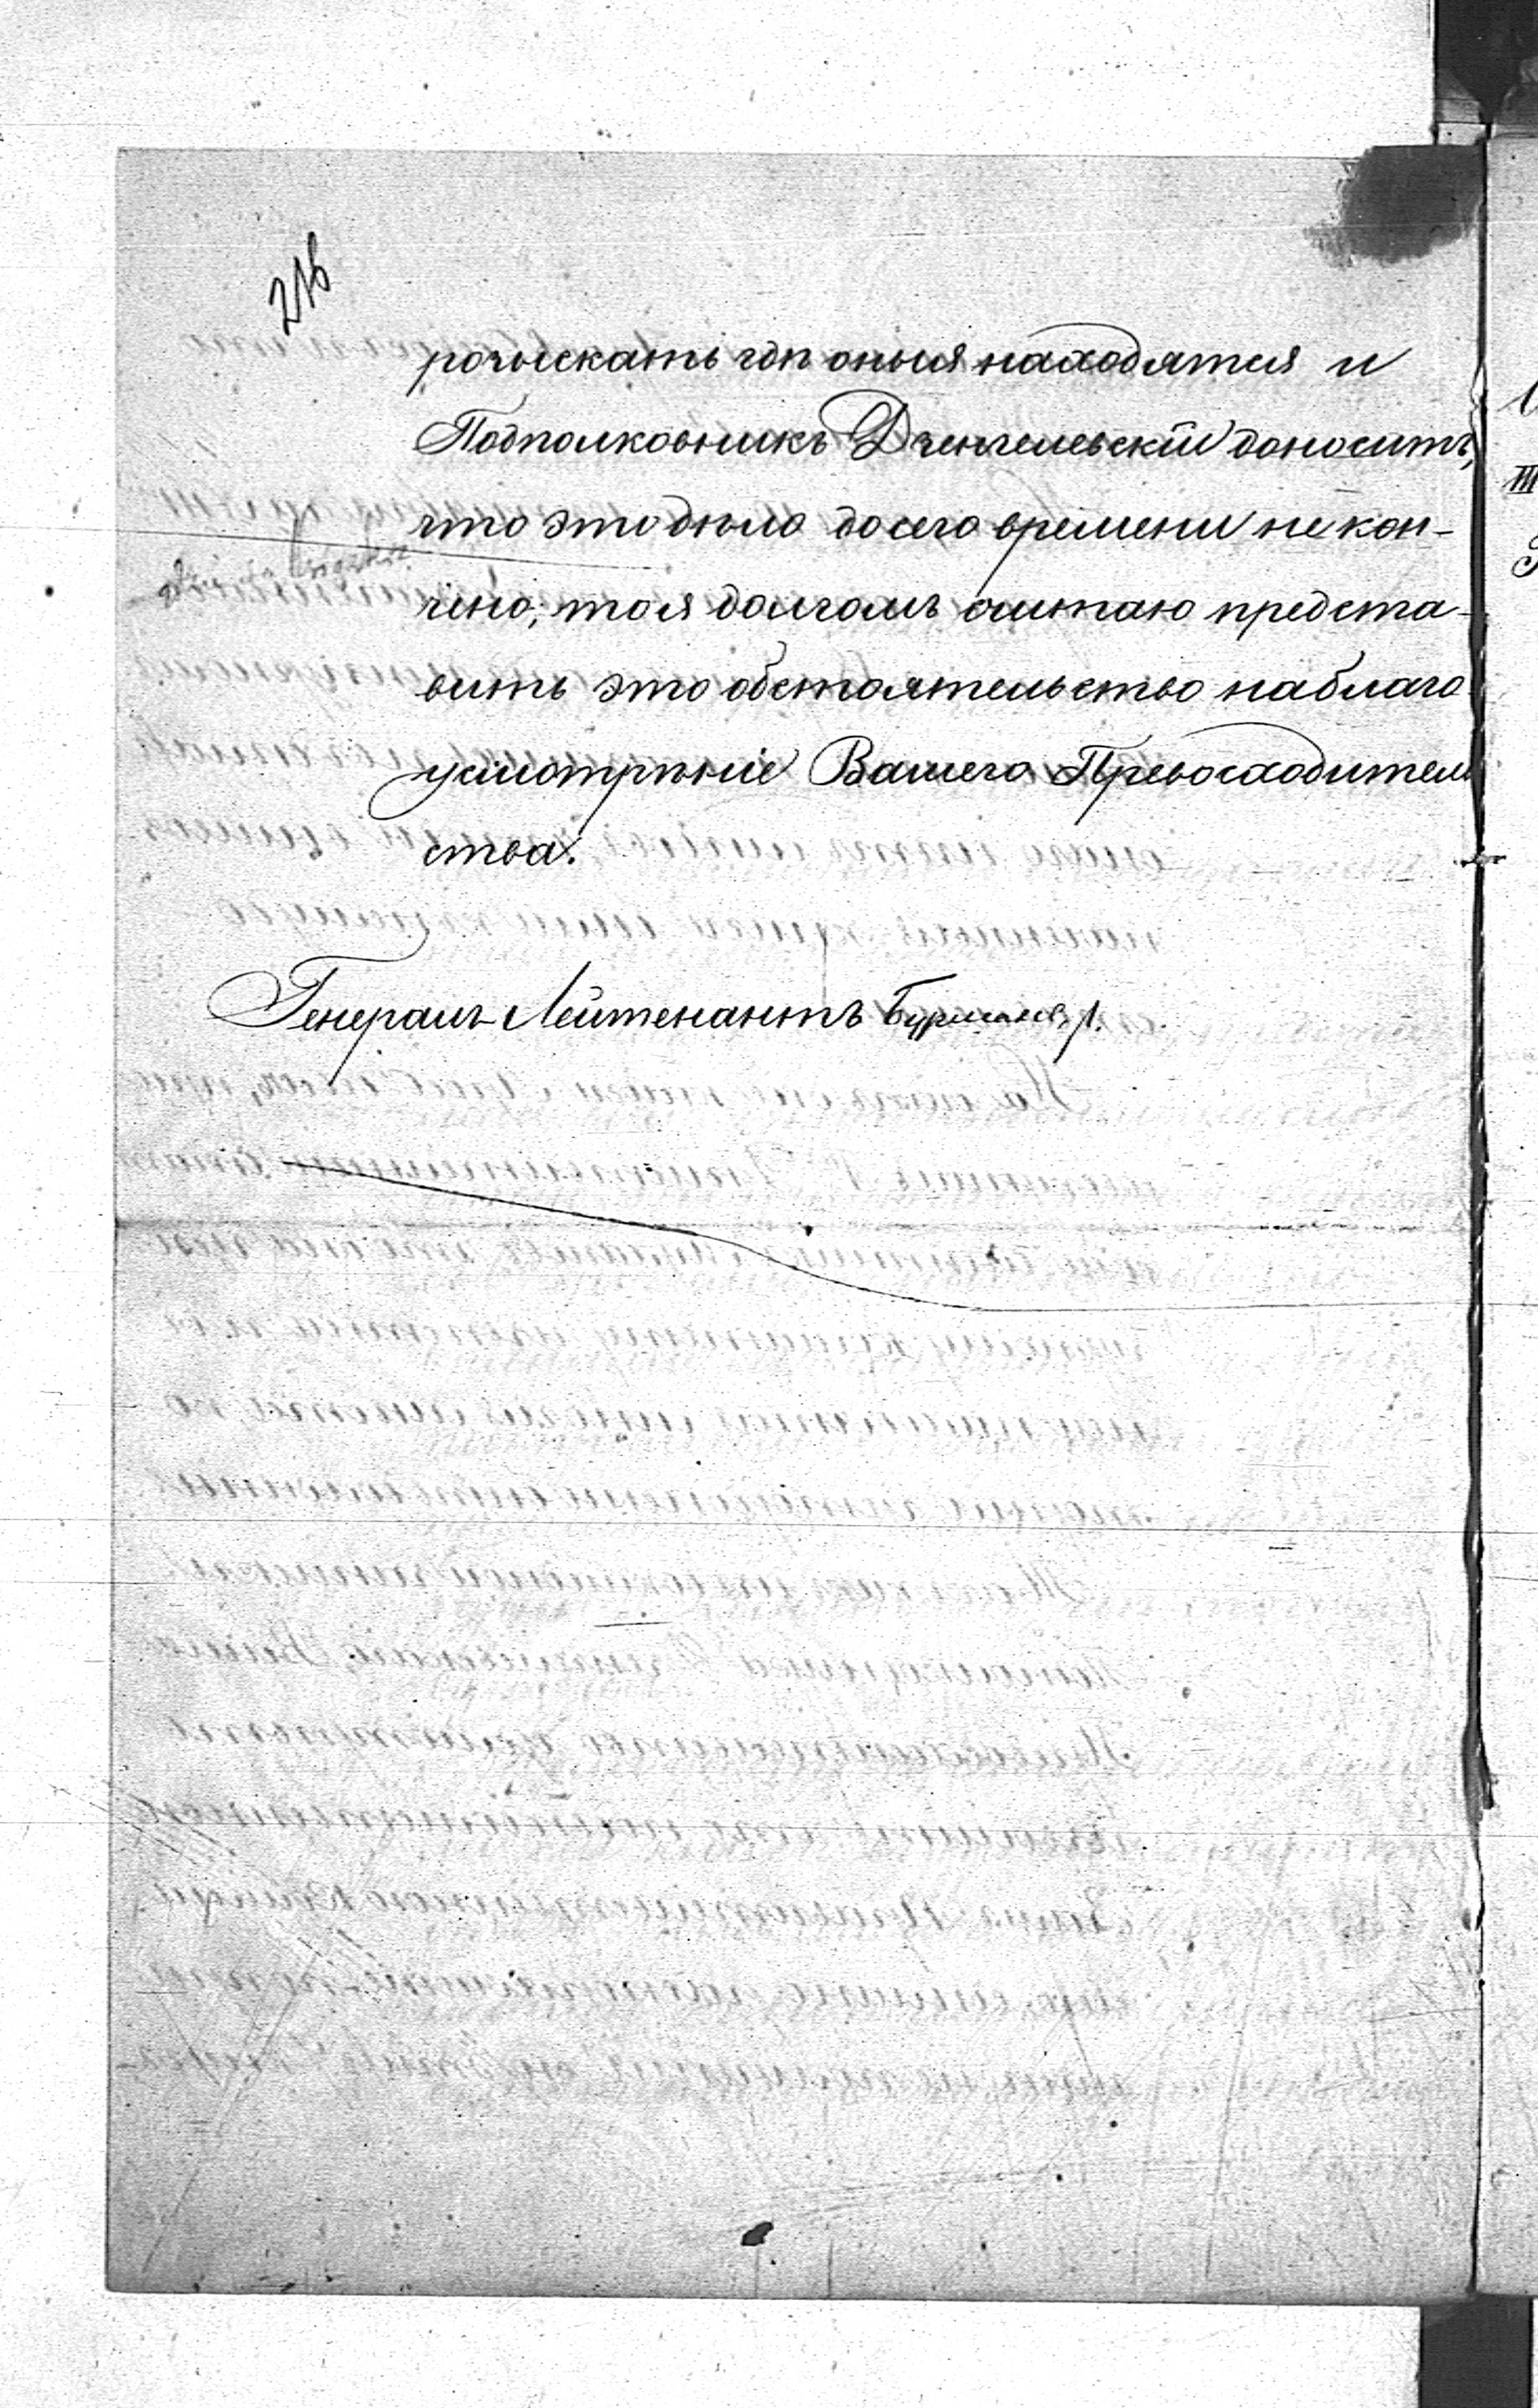 216
розыскать гдѣ оныя находятся и
Подполковникъ Дженгелевскій доноситъ,
что это дѣло досего времени не кон-
чено; то я долгомъ считаю предста-
вить это обстоятельство на благо
усмотрѣніе Вашего Превосходитель
ства.
Генералъ-Лейтенантъ